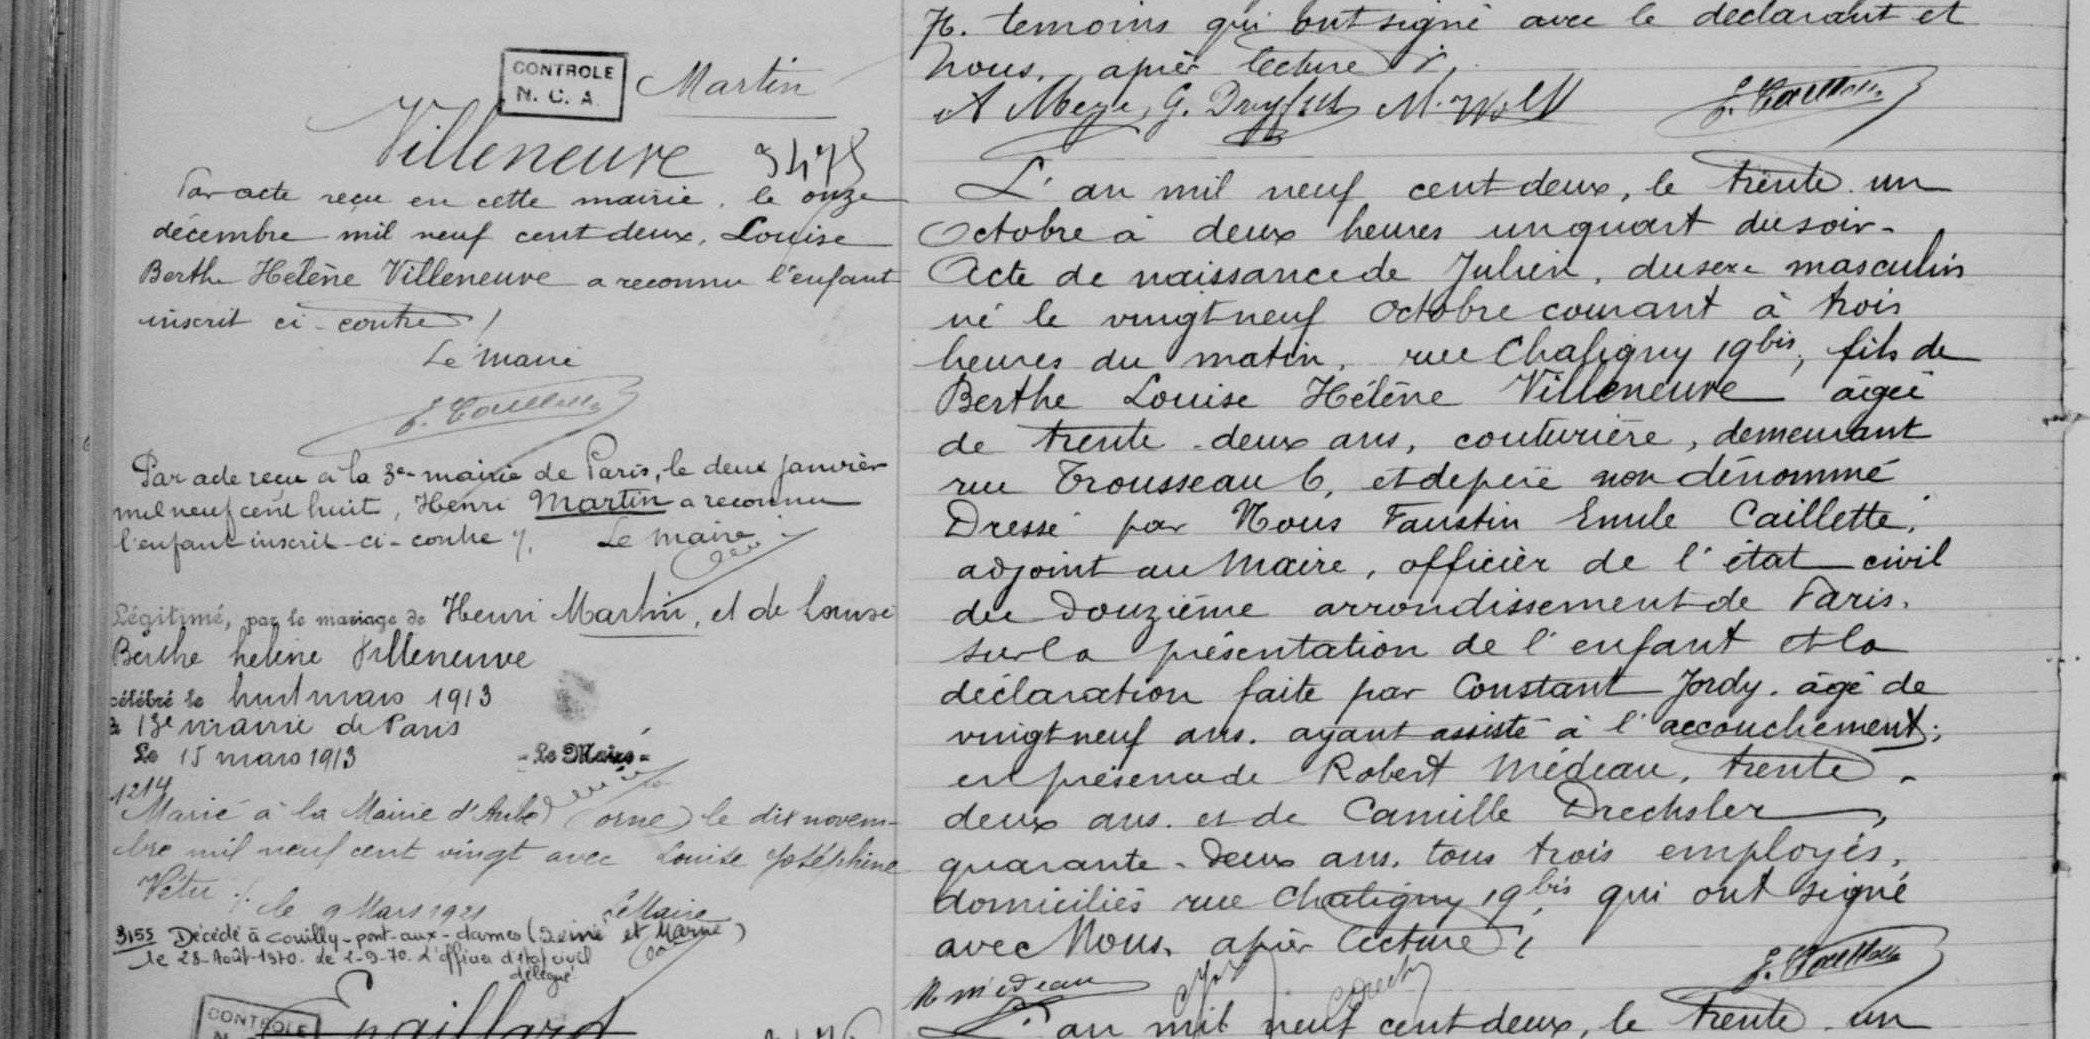 CONTROLE
N. C. A.
Martin
Villeneuve 3475
Par acte reçu en cette mairie, le onze
décembre mil neuf cent deux, Louise
Berthe Hélène Villeneuve a reconnu l'enfant
inscrit ci-contre /
Le maire
Par acte reçu à la 3e mairie de Paris, le deux janvier
mil neuf cent huit, Henri Martin a reconnu
l'enfant inscrit ci-contre /. Le Maire
Légitimé, par le mariage de Henri Martin, et de Louise
Berthe hélène Villeneuve
célébré le huit mars 1913
à 13e mairie de Paris
Le 15 mars 1913 - Le Maire -
1214
Marié à la Mairie d'Aube (orne) le dix novem-
bre mil neuf cent vingt avec Louise Joséphine
Vétu /. le 9 Mars 1921 Le Maire
3155 Décédé à Couilly-pont-aux-dames (Seine et Marne)
le 28 Août 1970. le 2-9-70. L'officier d'état civil
délégué
CONTROLE
N.
témoins qui ont signé avec le déclarant et
Nous, après lecture /.
A Meye, G. Dreyfus M. Wolff
L'an mil neuf cent deux, le trente un
Octobre à deux heures un quart du soir -
Acte de naissance de Julien, du sexe masculin
né le vingt neuf Octobre courant à trois
heures du matin, rue Chaligny 19bis, fils de
Berthe Louise Hélène Villeneuve âgée
de trente-deux ans, couturière, demeurant
rue Trousseau 6, et de père non dénommé
Dressé par Nous Faustin Emile Caillette,
adjoint au Maire, officier de l'état civil
du Douzième arrondissement de Paris,
sur la présentation de l'enfant et la
déclaration faite par Constant Jordy, âgé de
vingt neuf ans, ayant assisté à l'accouchement;
en présence de Robert Médeau, trente -
deux ans, et de Camille Drechsler,
quarante-deux ans, tous trois employés,
domiciliés rue Chaligny 19bis, qui ont signé
avec Nous, après lecture /.
R Médeau
L'an mil neuf cent deux, le trente un